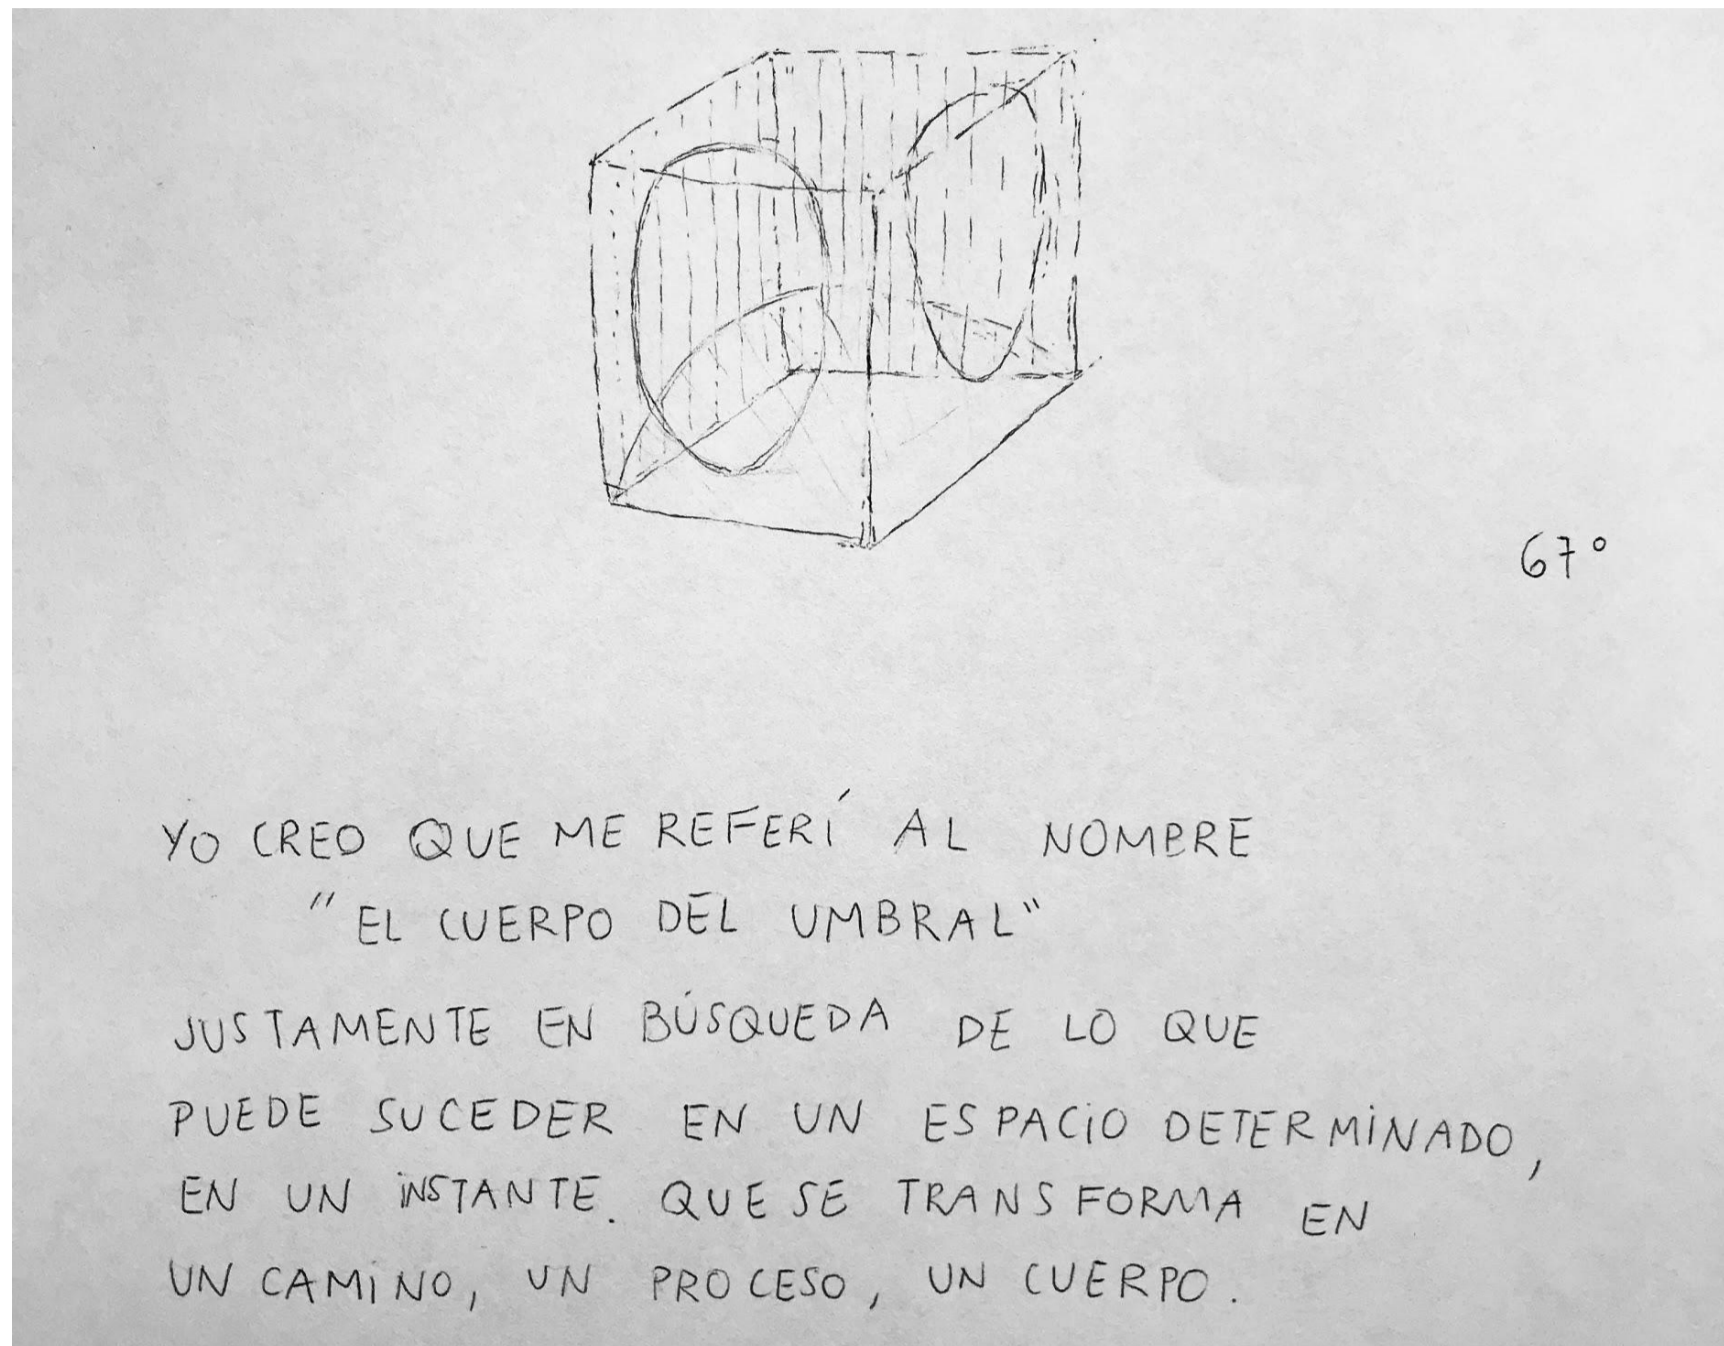 67°
YO CREO QUE ME REFERÍ AL NOMBRE
"EL CUERPO DEL UMBRAL"
JUSTAMENTE EN BÚSQUEDA DE LO QUE
PUEDE SUCEDER EN UN ESPACIO DETERMINADO,
EN UN INSTANTE. QUE SE TRANSFORMA EN
UN CAMINO, UN PROCESO, UN CUERPO.